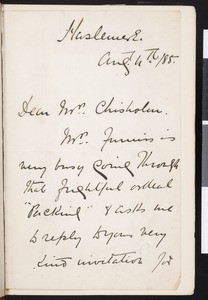 Haslemere.
Augt 4th/85.
Dear Mrs. Chisholm.
Mrs. Furniss is
very busy going through
that frightful ordeal
"Packing" & asks me
to reply to your very
kind invitation for